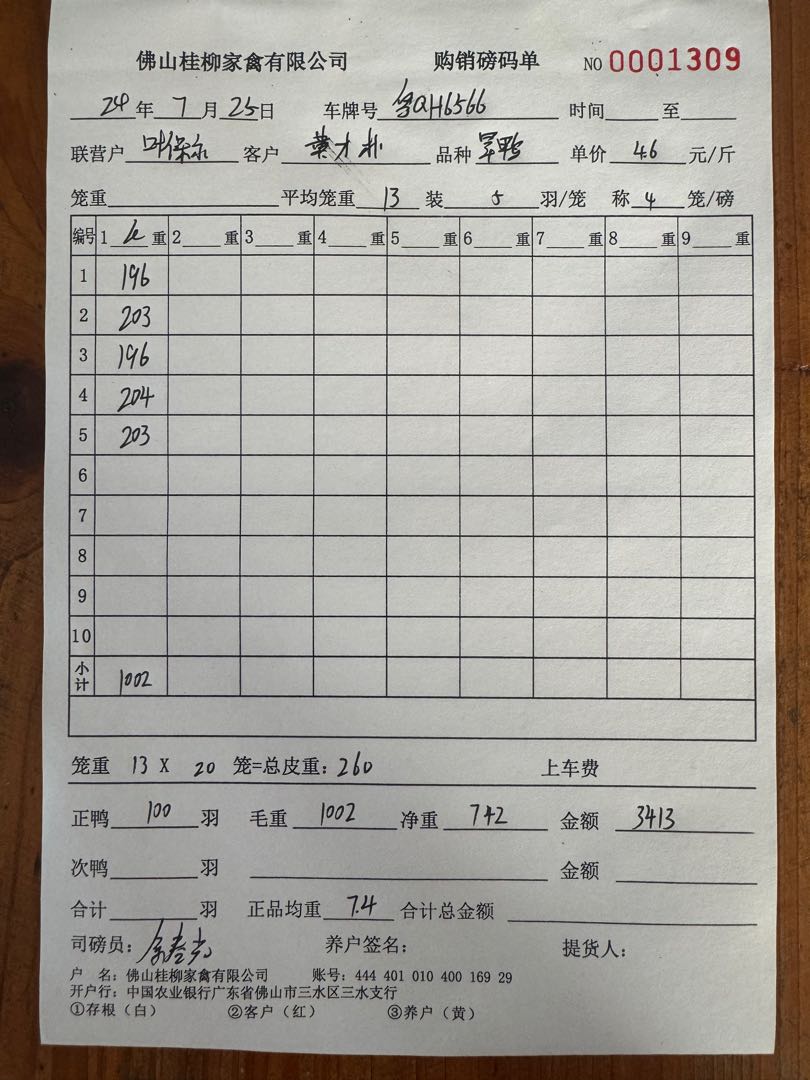 佛山桂柳家禽有限公司 购销磅码单 NO 0001309
24年 7月25日 车牌号 粤QH6566 时间 至
联营户 叶保永 客户 黄才朴 品种 旱鸭 单价 4.6 元/斤
笼重 平均笼重 13 装 5 羽/笼 称 4 笼/磅
编号 1 重 2 重 3 重 4 重 5 重 6 重 7 重 8 重 9 重
1 196
2 203
3 196
4 204
5 203
6
7
8
9
10
小计 1002
笼重 13 X 20 笼=总皮重：260 上车费
正鸭 100 羽 毛重 1002 净重 742 金额 3413
次鸭 羽 金额
合计 羽 正品均重 7.4 合计总金额
司磅员： 养户签名： 提货人：
户 名：佛山桂柳家禽有限公司 账号：444 401 010 400 169 29
开户行：中国农业银行广东省佛山市三水区三水支行
①存根（白） ②客户（红） ③养户（黄）